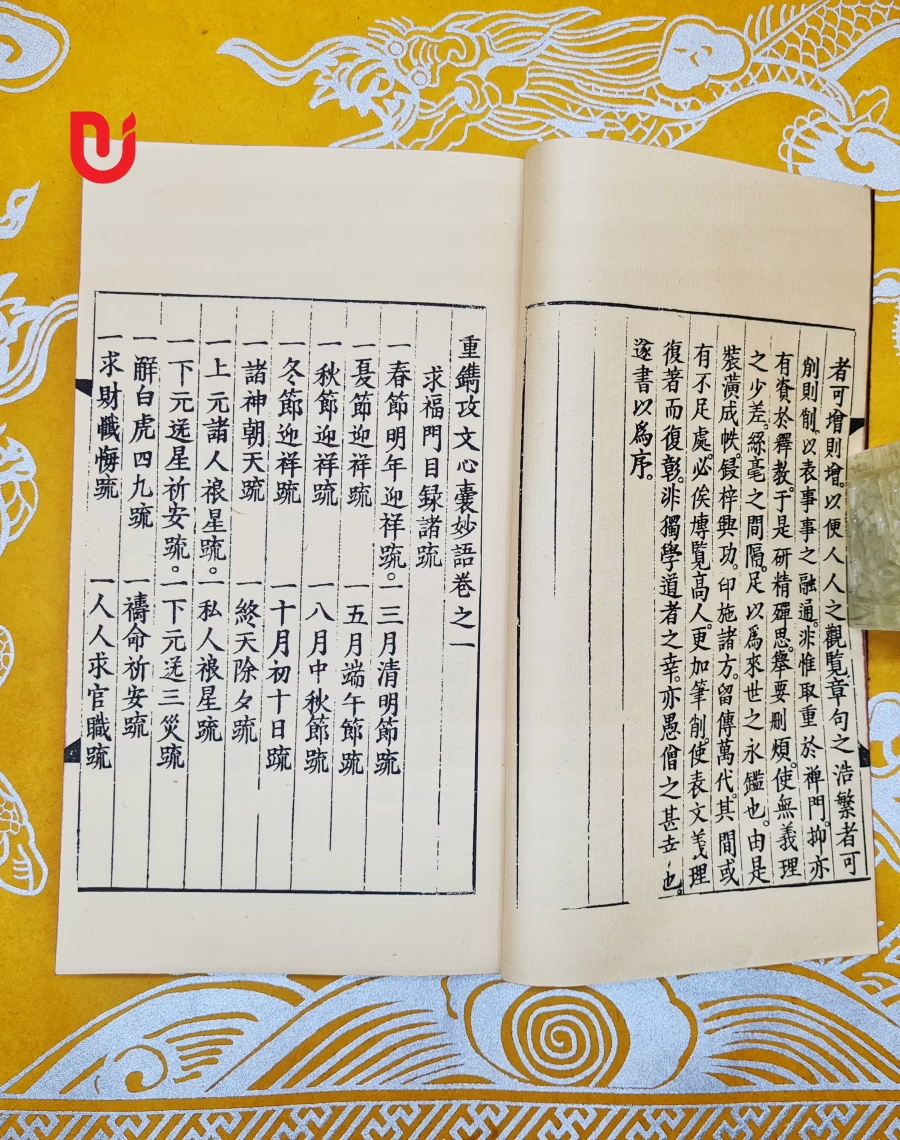 者可增則增。以便人人之觀覧章句之浩繁者可
削則削。以表事事之融通。非惟取重於禅門。抑亦
有資於釋教。于是研精殫思。舉要刪煩。使無義理
之少差。絲毫之間隔。足以爲來世之永鑑也。由是
裝潢成帙。鋟梓興功。印施諸方。留傳萬代。其間或
有不足處。必俟博覧高人。更加筆削。使表文義理
復著而復彰。非獨學道者之幸。亦愚僧之甚幸也。
遂書以爲序。
重鐫攻文心囊妙語卷之一
求福門目録諸䟽
一春節明年迎祥䟽。一三月清明節䟽
一憂節迎祥䟽 一五月端午節䟽
一秋節迎祥䟽 一八月中秋節䟽
一冬節迎祥䟽 一十月初十日䟽
一諸神朝天䟽 一終天除夕䟽
一上元諸人禳星䟽。一私人禳星䟽
一下元送星祈安䟽。一下元送三災䟽
一解白虎四九䟽 一禱命祈安䟽
一求財懺悔䟽 一人人求官職䟽